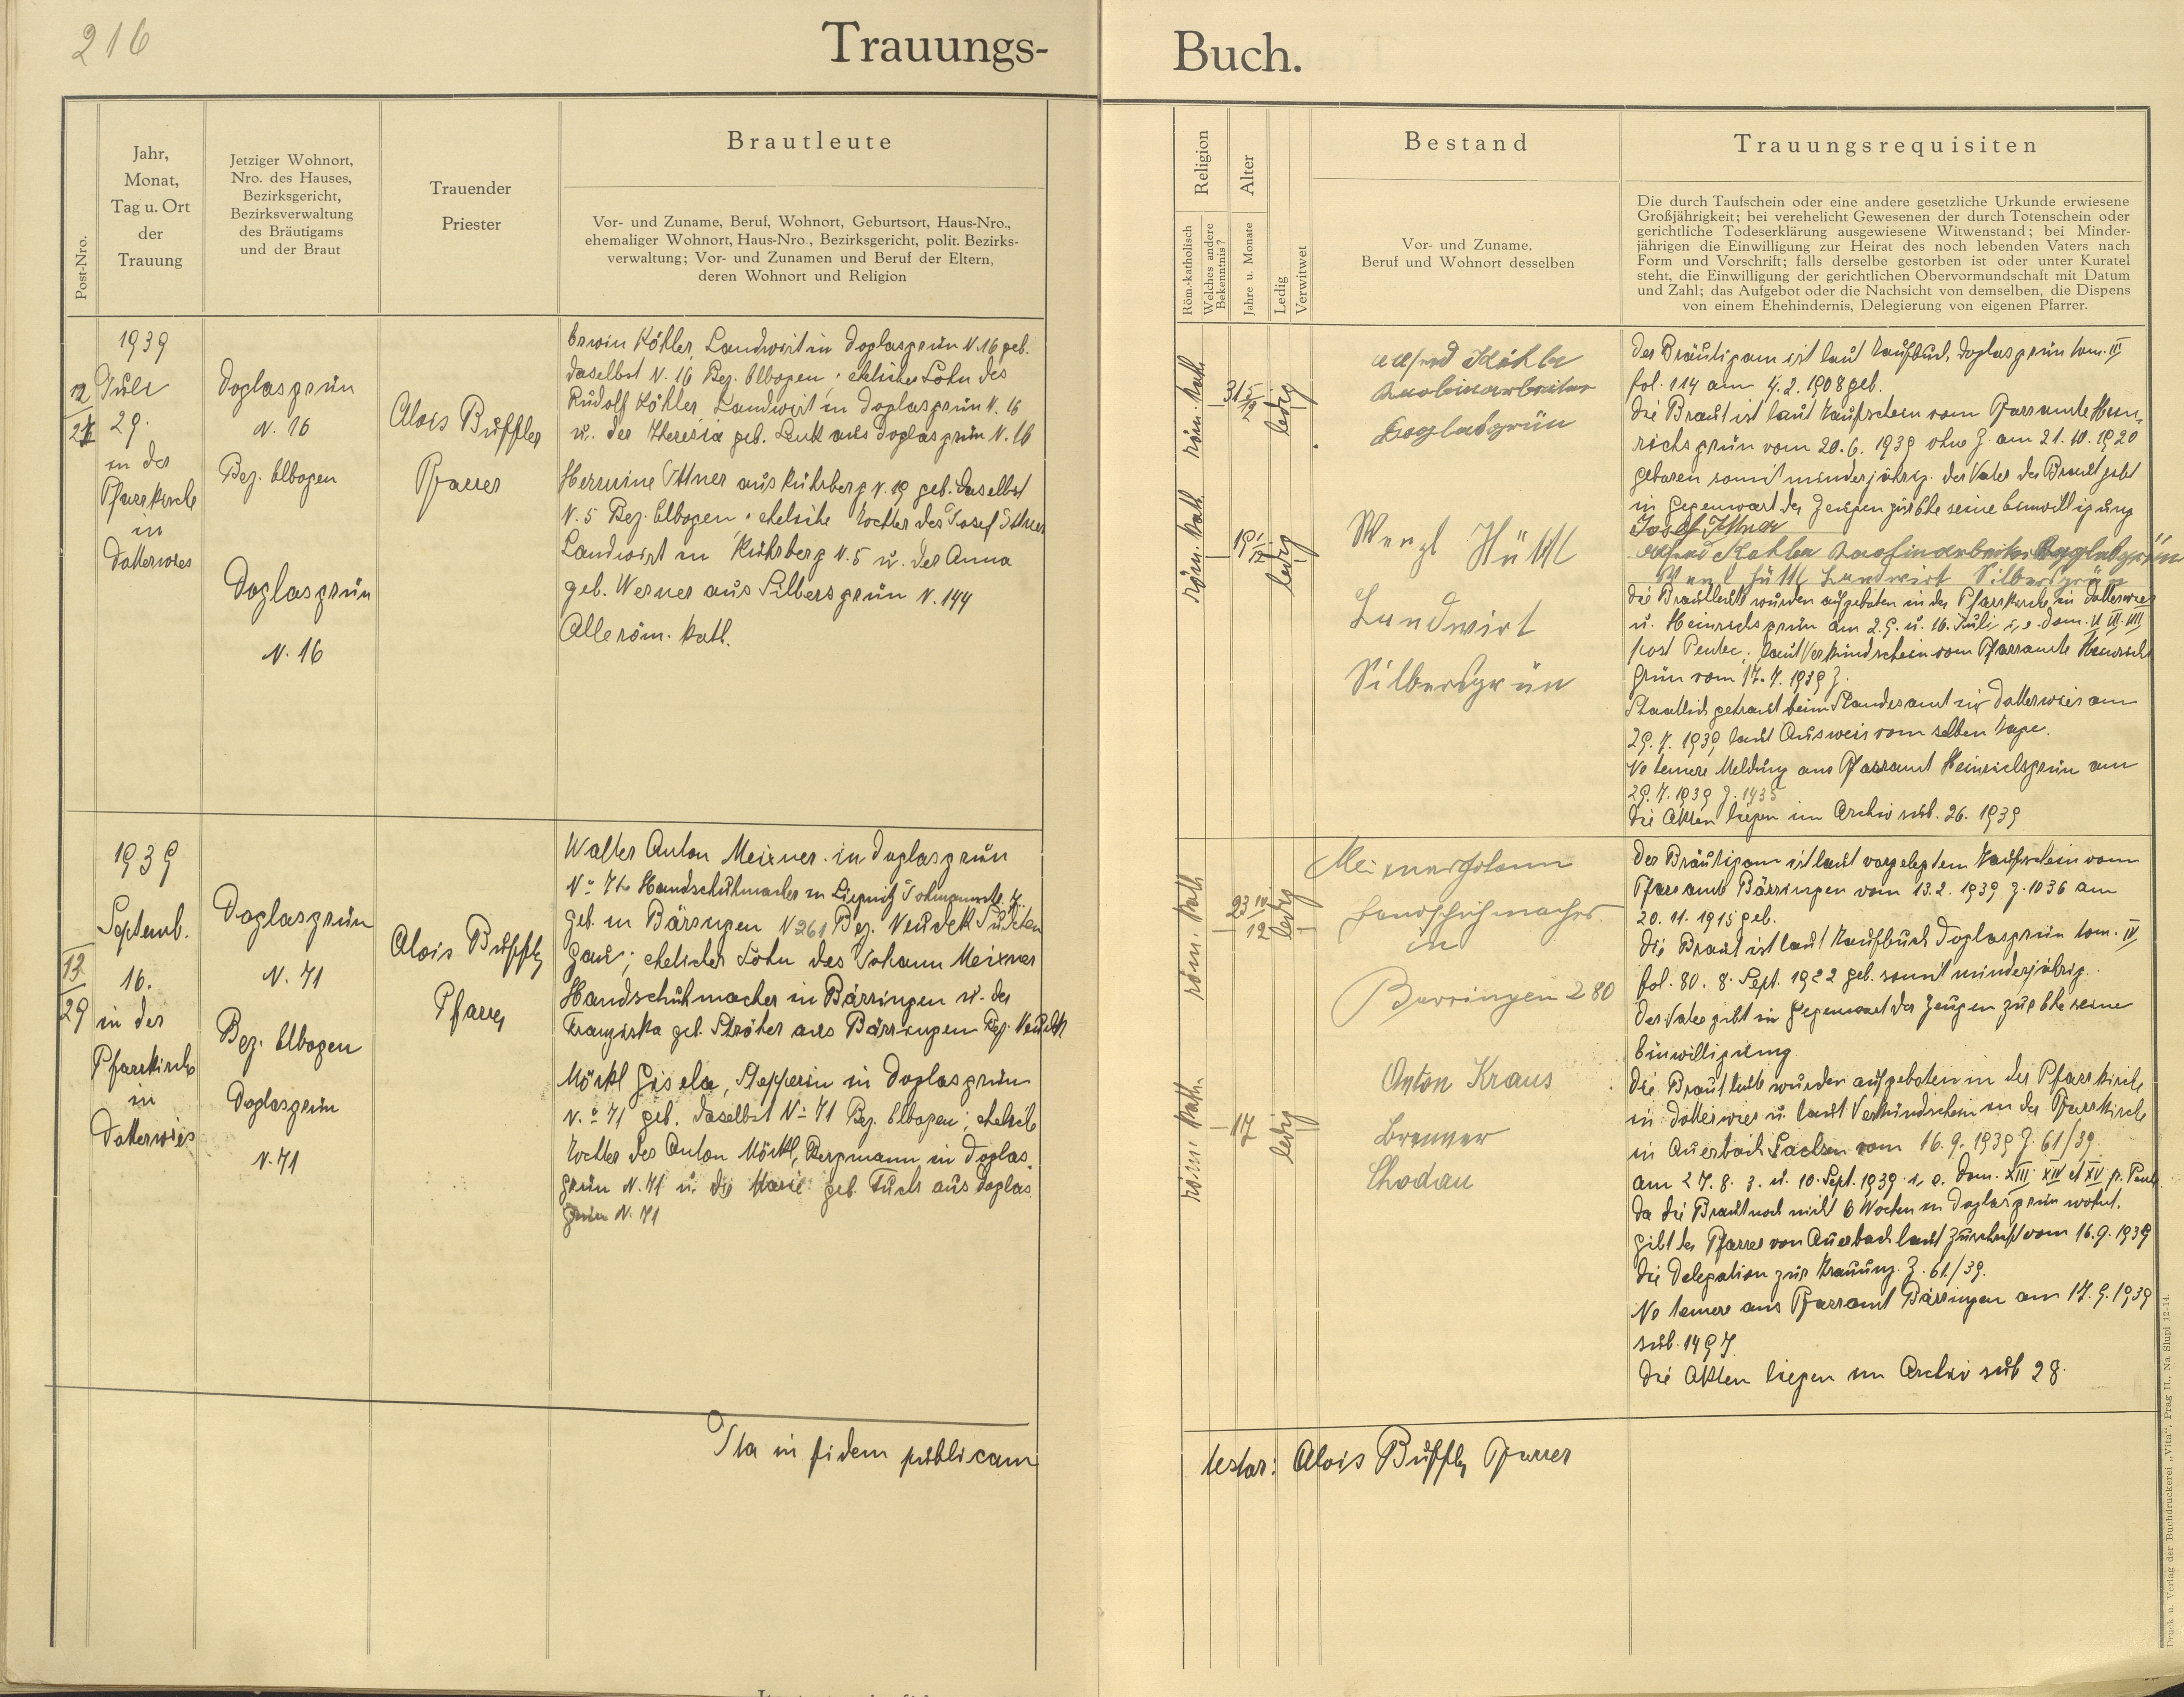 216
Trauungs-
Post-Nro.
Jahr,
Monat,
Tag u. Ort
der
Trauung
Jetziger Wohnort,
Nro. des Hauses,
Bezirksgericht,
Bezirksverwaltung
des Bräutigams
und der Braut
Trauender
Priester
Brautleute
Vor- und Zuname, Beruf, Wohnort, Geburtsort, Haus-Nro.,
ehemaliger Wohnort, Haus-Nro., Bezirksgericht, polit. Bezirks-
verwaltung; Vor- und Zunamen und Beruf der Eltern,
deren Wohnort und Religion
12
1939
Juli
29.
in der
Pfarrkirche
in
Dotterwies
Doglasgrün
N. 16
Bez. Elbogen
Doglasgrün
N. 16
Alois Buffler
Pfarrer
Erwin Köhler, Landwirt in Doglasgrün N. 16 geb.
daselbst N. 16 Bez. Elbogen; ehelicher Sohn des
Rudolf Köhler, Landwirt in Doglasgrün N. 16
u. der Theresia geb. Lenk aus Doglasgrün N. 16
Hermine Ittner aus Kührberg N. 19 geb. daselbst
N. 5 Bez. Elbogen; eheliche Tochter des Josef Ittner
Landwirt in Kührberg N. 5 u. der Anna
geb. Werner aus Silbersgrün N. 144
Alle röm. kath.
13
29
1939
Septemb.
16.
in der
Pfarrkirche
in
Dotterwies
Doglasgrün
N. 71
Bez. Elbogen
Doglasgrün
N. 71
Alois Buffler
Pfarrer
Walter Anton Meixner in Doglasgrün
No 71 Handschuhmacher in
geb. in Bärringen N 261 Bez. Neudek Sudeten
gau; ehelicher Sohn des Johann Meixner
Handschuhmacher in Bärringen u. der
Franziska geb. Ströher aus Bärringen Bez. Neudek
Möckl Gisela, Stepperin in Doglasgrün
No 71 geb. daselbst No 71 Bez. Elbogen; eheliche
Tochter des Anton Möckl, Bergmann in Doglas-
grün N. 71 u. der Marie geb. Fuchs aus Doglas
grün N. 71
Ita in fidem publicam
Buch.
Religion
Röm.-katholisch
Welches andere
Bekenntnis?
Alter
Jahre u. Monate
Ledig
Verwitwet
Bestand
Vor- und Zuname,
Beruf und Wohnort desselben
Trauungsrequisiten
Die durch Taufschein oder eine andere gesetzliche Urkunde erwiesene
Großjährigkeit; bei verehelicht Gewesenen der durch Totenschein oder
gerichtliche Todeserklärung ausgewiesene Witwenstand; bei Minder-
jährigen die Einwilligung zur Heirat des noch lebenden Vaters nach
Form und Vorschrift; falls derselbe gestorben ist oder unter Kuratel
steht, die Einwilligung der gerichtlichen Obervormundschaft mit Datum
und Zahl; das Aufgebot oder die Nachsicht von demselben, die Dispens
von einem Ehehindernis, Delegierung von eigenen Pfarrer.
röm. kath.
31 5/12
ledig
röm. kath.
ledig
Alfred Köhler
Doglasgrün
Wenzl Hüttl
Landwirt
Silbersgrün
Der Bräutigam ist laut Taufbuch Doglasgrün tom. III
fol. 114 am 4. 2. 1908 geb.
Die Braut ist laut Taufschein vom Pfarramte Hein-
richsgrün vom 20. 6. 1939 ohne Z. am 21. 10. 1920
geboren somit minderjährig. Der Vater der Braut gibt
in Gegenwart der Zeugen zur Ehe seine Einwilligung
Josef Ittner
Alfred Köhler Doglasgrün
Wenzl Hüttl Landwirt Silbersgrün
Die Brautleute wurden aufgeboten in der Pfarrkirche in Dotterwies
u. Heinrichsgrün am 2. 9. u. 16. Juli, i. e. Dom. V VI VII
post Pentec. laut Verkündschein vom Pfarramte Heinrichs
grün vom 17. 7. 1939 Z.
Staatlich getraut beim Standesamt in Dotterwies am
29. 7. 1939 laut Ausweis vom selben Tage.
Ne temere Meldung ans Pfarramt Heinrichsgrün am
29. 7. 1939 Z. 1435
Die Akten liegen im Archiv sub. 26. 1939
röm. kath
ledig
röm. kath.
17
ledig
Meixner Johann
Handschuhmacher
in
Barringen 280
Anton Kraus
Brenner
Chodau
Der Bräutigam ist laut vorgelegtem Taufschein vom
Pfarramte Bärringen vom 13. 2. 1939 Z. 1036 am
20. 11. 1915 geb.
Die Braut ist laut Taufbuch Doglasgrün tom. IV
fol. 80. 8. Sept. 1922 geb. somit minderjährig.
Der Vater gibt in Gegenwart der Zeugen zur Ehe seine
Einwilligung
Die Brautleute wurden aufgeboten in der Pfarrkirche
in Dotterwies u. laut Verkündschein in der Pfarrkirche
in Auerbach Sachsen vom 16. 9. 1939 Z. 61/39
am 27. 8. 3. u. 10. Sept. 1939 i. e. Dom. XIII XIV et XV p. Pent.
Da die Braut noch nicht 6 Wochen in Doglasgrün wohnt,
gibt der Pfarrer von Auerbach laut Zuschrift vom 16. 9. 1939
die Delegation zur Trauung. Z. 61/39.
Ne temere ans Pfarramt Bärringen am 17. 9. 1939
sub. 1497
Die Akten liegen im Archiv sub 28.
testor: Alois Buffler Pfarrer
Druck u. Verlag der Buchdruckerei „Vita“, Prag II., Na Slupi 12-14.